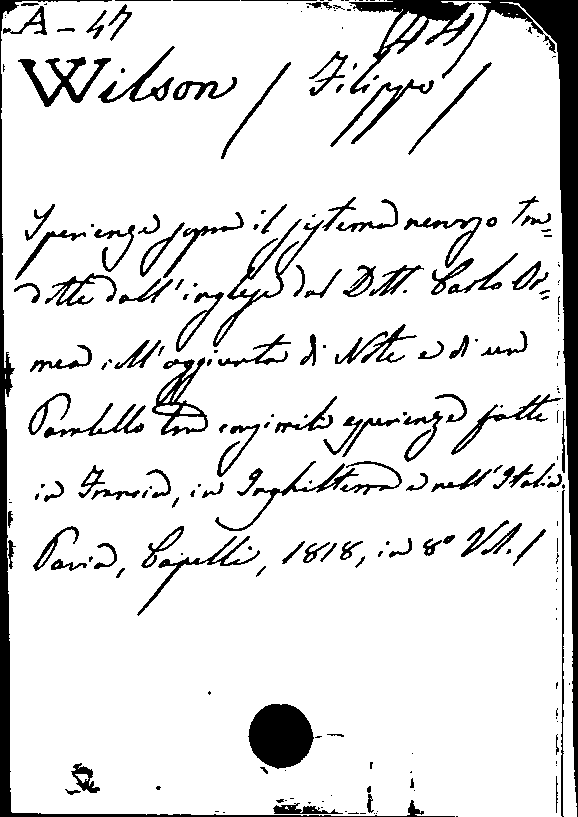 A-47 (44)
Wilson / Filippo /
Sperienze sopra il sistema nervoso tra=
dotte dall'inglese dal Dott. Carlo Or=
mea coll'aggiunta di Note e di un
Parallello tra consimili esperienze fatte
in Francia, in Inghilterra e nell'Italia.
Pavia, Capelli, 1818, in 8º Vol. 1